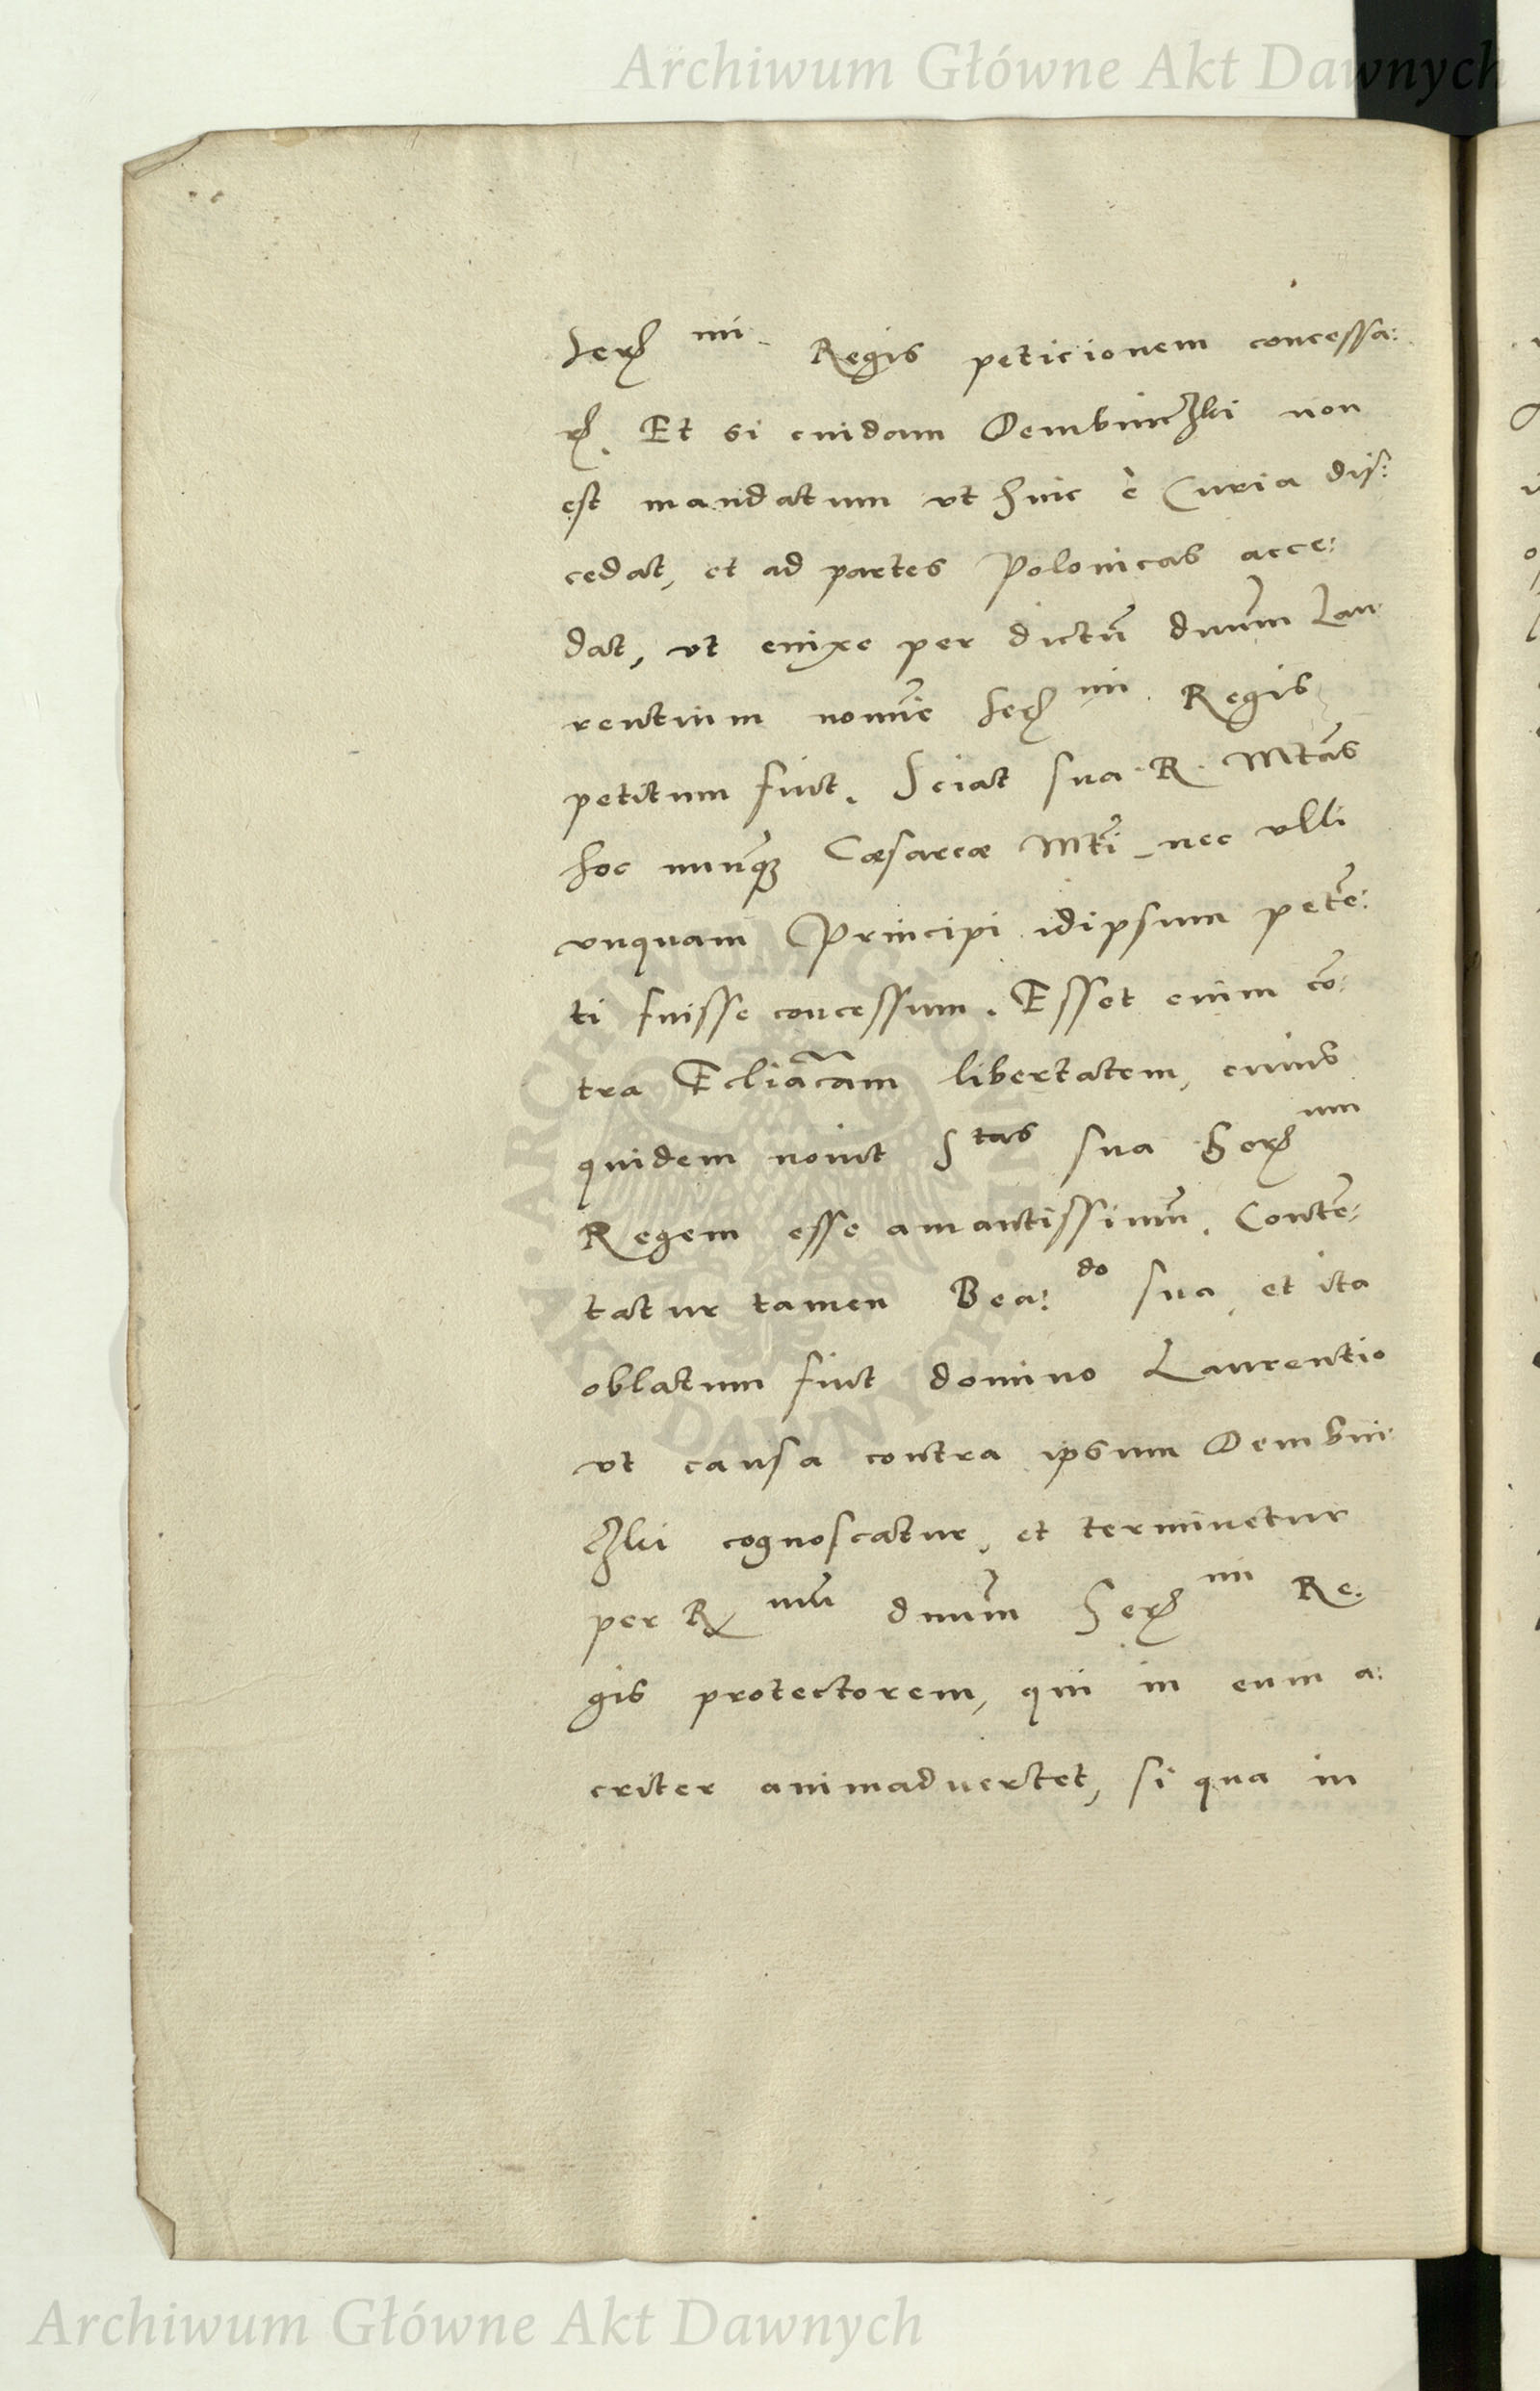 Archiwum Główne Akt Dawnych
Ser.mi Regis peticionem concessa:
Et si cuidam Dembinczki non
est mandatum vt hinc è Curia dis:
cedat, et ad partes Polonicas acce:
dat, vt enixe per dictũ dnũm Lau
rentium nomĩe Ser.mi Regis
petitum fuit. Sciat sua R. Mtãs
hoc nunq̃ Cæsareæ Mtĩ nec vlli
vnquam Principi idipsum petẽ:
ti fuisse concessum. Esset enim cõ:
tra Ecliãcam libertatem, cuius
quidem nouit Stas sua Ser.mum
Regem esse amantissimũ. Contẽ:
tatur tamen Bea:do sua, et ita
oblatum fuit domino Laurentio
vt causa contra ipsum Dembin
czki cognoscatur, et terminetur
per R.mũ dnũm Ser.mi Re:
gis protectorem, qui in eum a:
criter animaduertet, si qua in
ARCHIWUM GŁÓWNE AKT DAWNYCH
Archiwum Główne Akt Dawnych